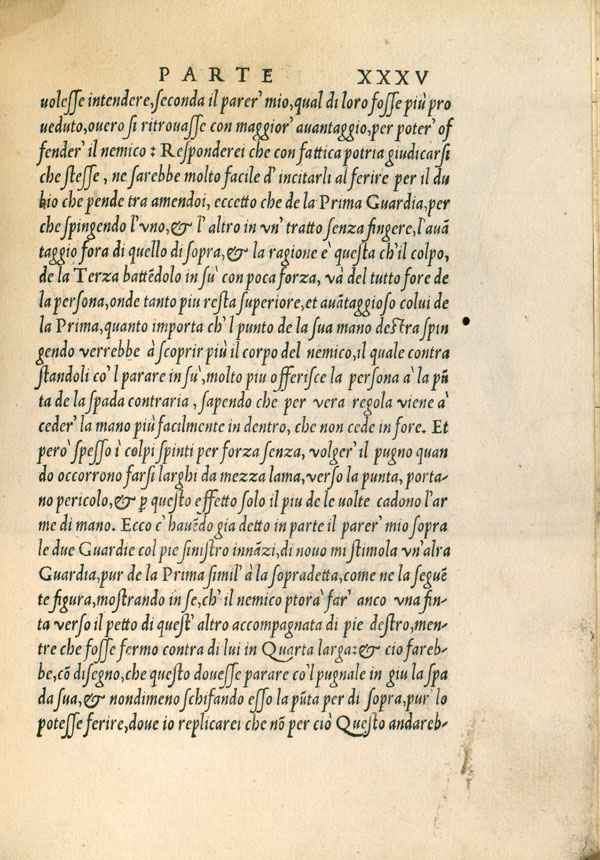 PARTE XXXV
uolesse intendere, seconda il parer' mio, qual di loro fosse più pro
ueduto, ouero si ritrouasse con maggior' auantaggio, per poter' of
fender' il nemico : Responderei che con fattica potria giudicarsi
che stesse , ne sarebbe molto facile d' incitarli al ferire per il du
bio che pende tra amendoi, eccetto che de la Prima Guardia, per
che spingendo l'vno, & l' altro in vn' tratto senza fingere, l'auã
taggio fora di quello di sopra, & la ragione e' questa ch'il colpo,
de la Terza battẽdolo in su' con poca forza, và del tutto fore de
la persona, onde tanto piu resta superiore, et auãtaggioso colui de
la Prima, quanto importa ch' l punto de la sua mano destra spin
gendo verrebbe à scoprir più il corpo del nemico, il quale contra
standoli co' l parare in su', molto piu offerisce la persona à la pũ
ta de la spada contraria , sapendo che per vera regola viene à
ceder' la mano più facilmente in dentro, che non cede in fore. Et
però spesso i colpi spinti per forza senza, volger' il pugno quan
do occorrono farsi larghi da mezza lama, verso la punta, porta-
no pericolo, & ꝑ questo effetto solo il piu de le uolte cadono l'ar
me di mano. Ecco c' hauẽdo gia detto in parte il parer' mio sopra
le due Guardie col pie sinistro innãzi, di nouo mi stimola vn'alra
Guardia, pur de la Prima simil' à la sopradetta, come ne la seguẽ
te figura, mostrando in se, ch' il nemico ptorà far' anco vna fin-
ta verso il petto di quest' altro accompagnata di pie destro, men-
tre che fosse fermo contra di lui in Quarta larga: & cio fareb-
be, cõ disegno, che questo douesse parare co'l pugnale in giu la spa
da sua, & nondimeno schifando esso la pũta per di sopra, pur' lo
potesse ferire, doue io replicarei che nõ per ciò Questo andareb-